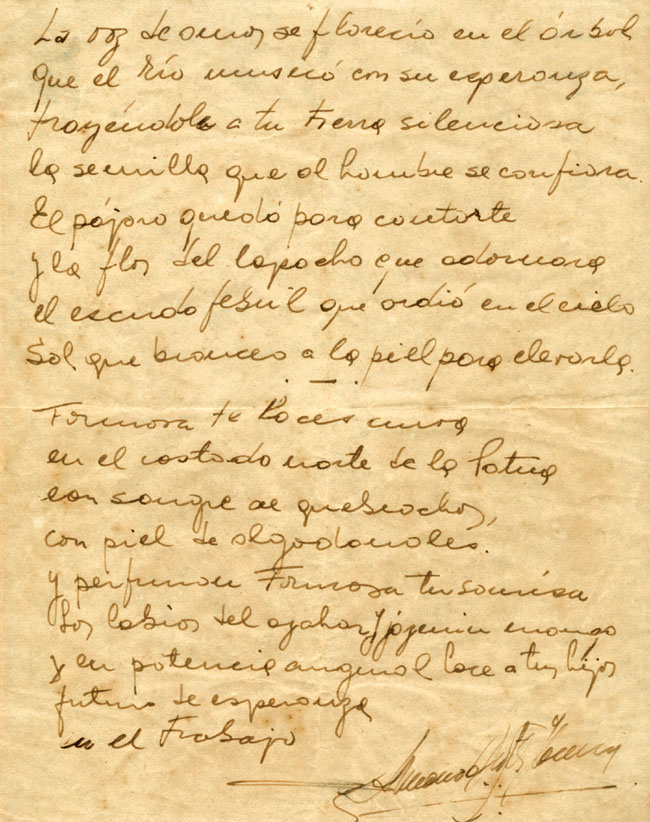 La voz de amor se floreció en el árbol
que el Río musicó con su esperanza,
trayéndole a tu tierra silenciosa
la semilla que al hombre se confiara.
El pájaro quedó para cantarte
y la flor del lapacho que adornara
el escudo febril que ardió en el cielo
Sol que broncea a la piel para elevarla.
Formosa te haces cuna
en el costado norte de la Patria
con sangre de quebrachos,
con piel de algodonales.
y perfuman Formosa tu sonrisa
Los labios del azahar, y jazmín mango
y en potencia nace a tus hijos
futuro de esperanza
en el Trabajo